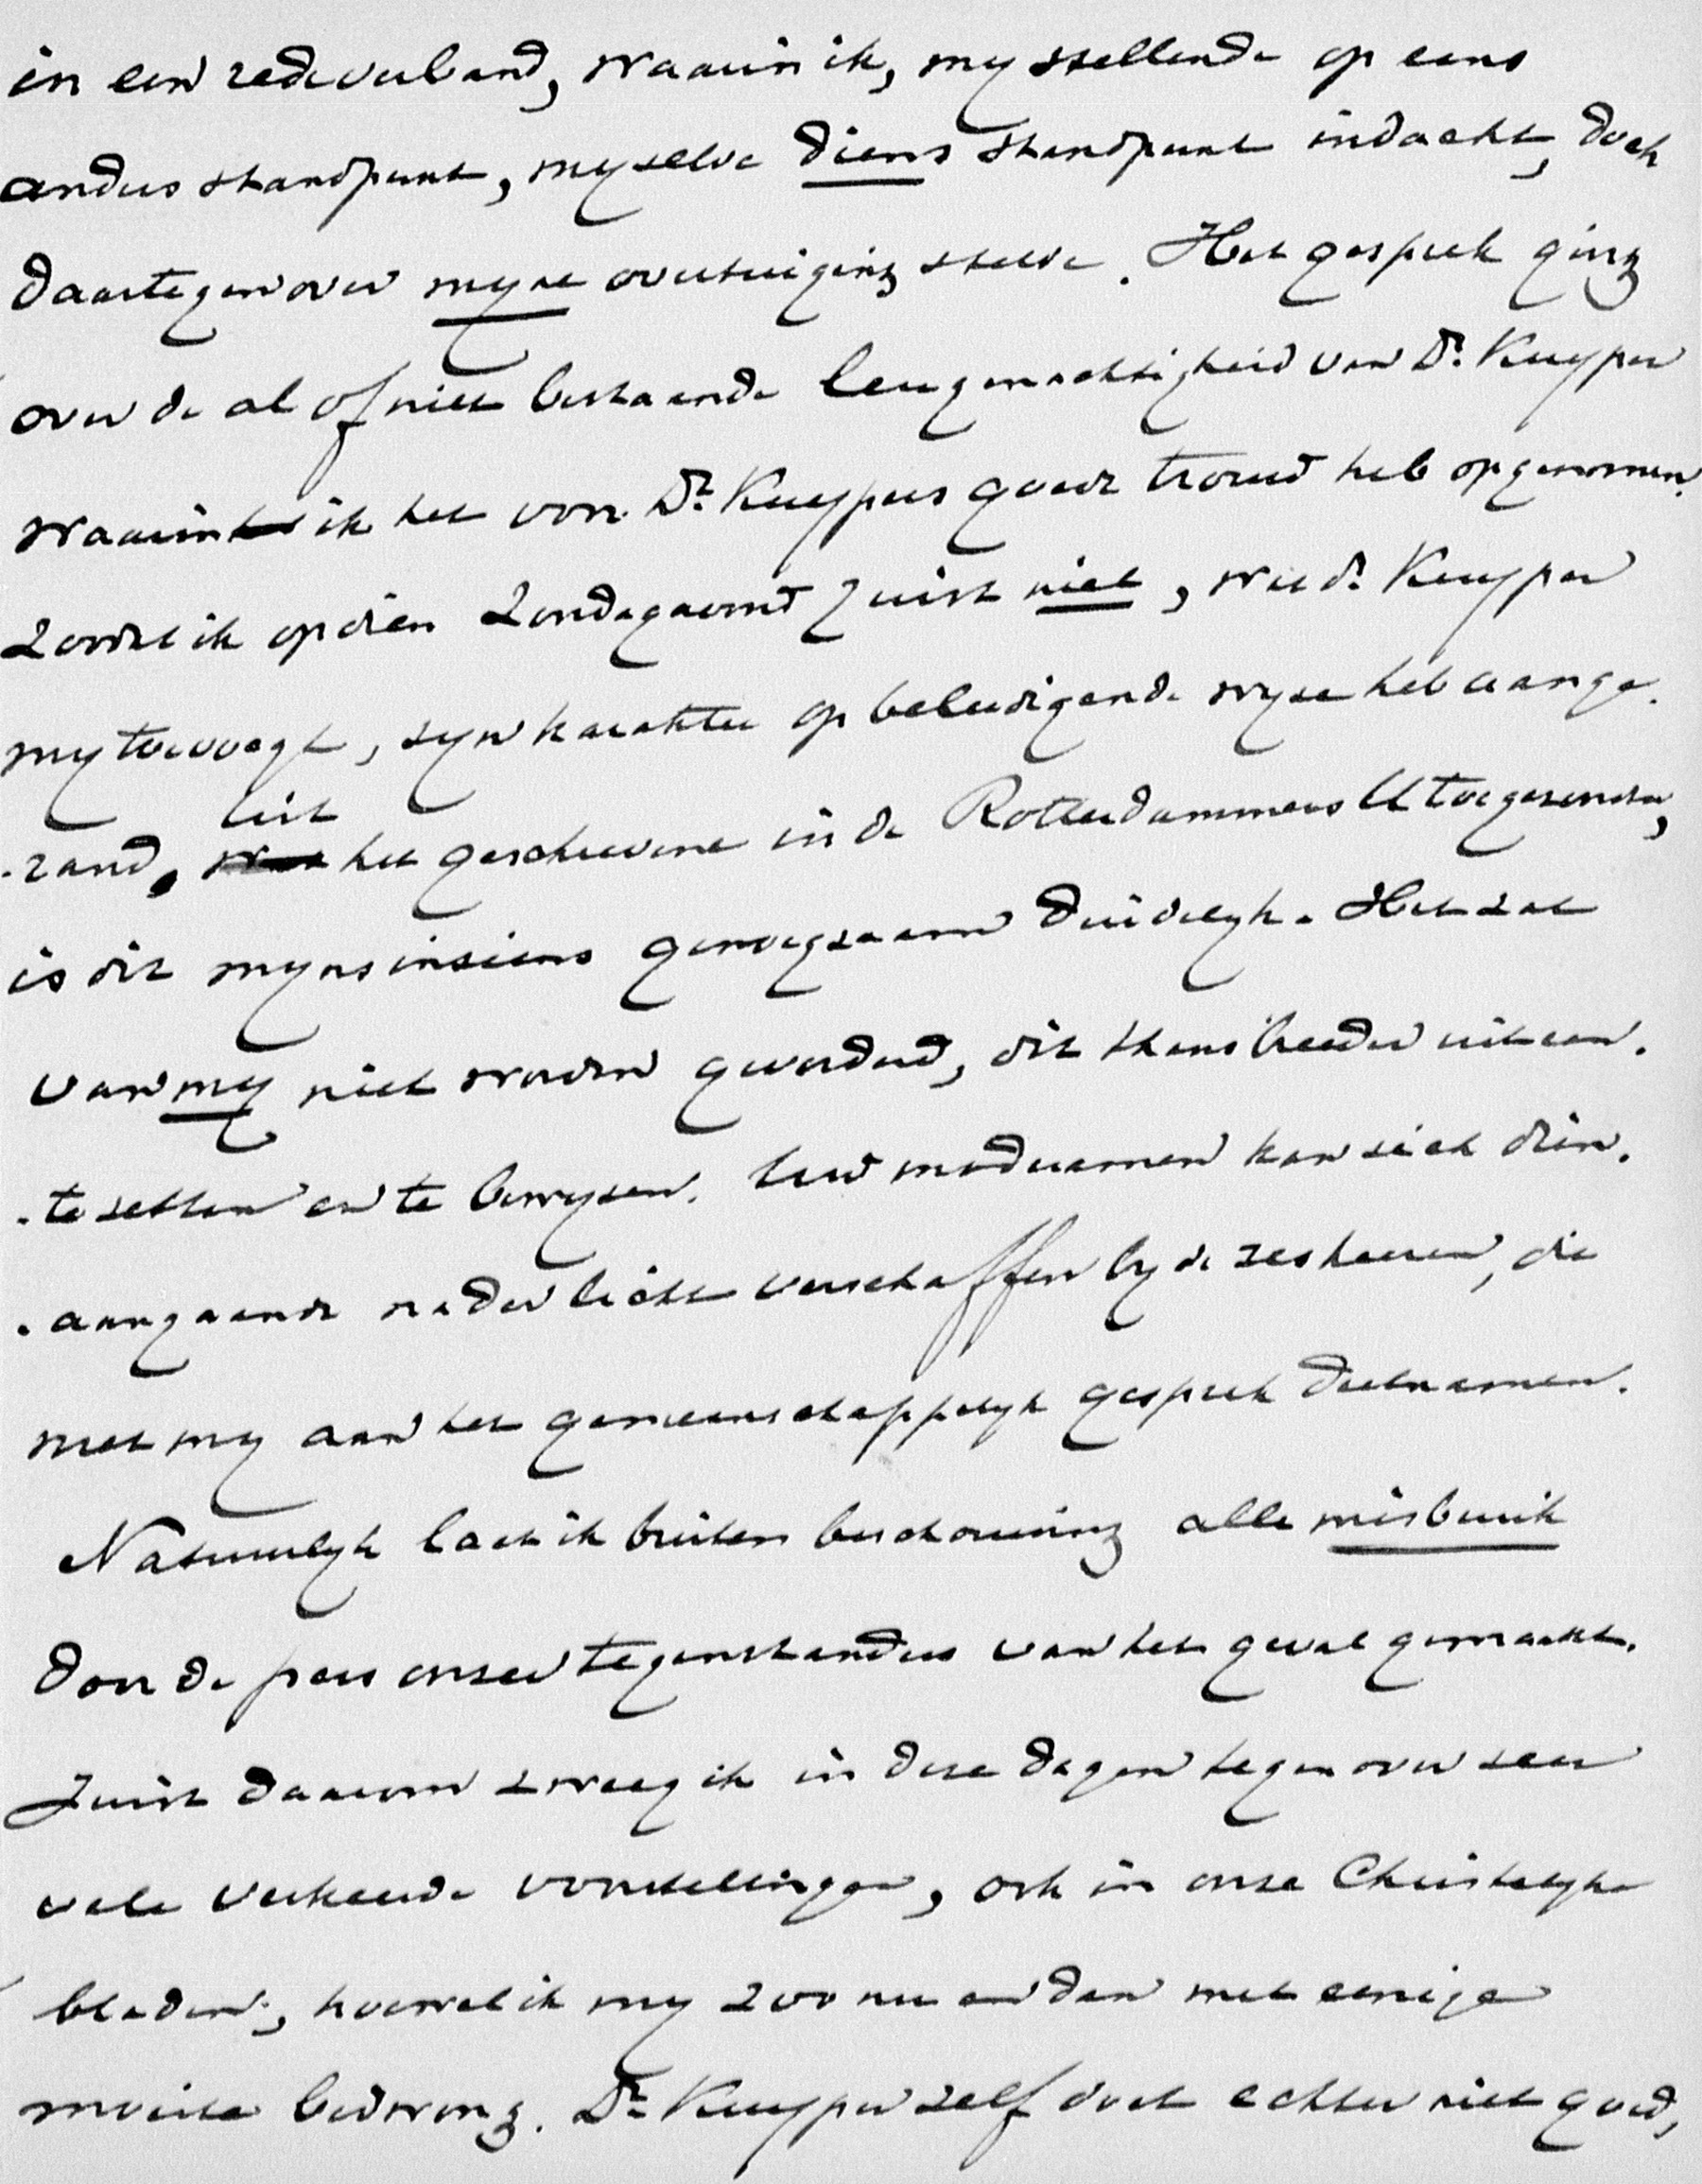 in een redeverband, waarin ik, my stellende op eens
anders standpunt, myzelve diens standpunt indacht, doch
daartegenover myne overtuiging stelde. Het gesprek ging
over de al of niet bestaande leugenachtigheid van Dr. Kuyper
waarin ik het voor Dr. Kuypers goede trouw heb opgenomen.
Zoodat ik op dien Zondagavond juist niet, wie dr. Kuyper
my toevoegt, zyn karakter op beleedigende wyze heb aange-
-rand, uit het geschrevene in de Rotterdammers U toegezonden,
is dit myns inziens genoegzaam duidelyk. Het zal
van my niet worden gevorderd, dit thans breeder uiteen-
-te zetten en te bewyzen. Uw moderamen kan zich dien-
-aangaande nader licht verschaffen by de zes heeren, die
met my aan het gemeenschappelyk gesprek deelnamen.
Natuurlyk laat ik buiten beschouwing alle misbruik
door de pers onzer tegenstanders van het geval gemaakt.
Juist daarom zweeg ik in deze dagen tegenover zeer
vele verkeerde voorstellingen, ook in onze Christelyke
bladen, hoewel ik my zoo nu en dan met eenige
moeite bedwong. Dr. Kuyper zelf doet echter niet goed,